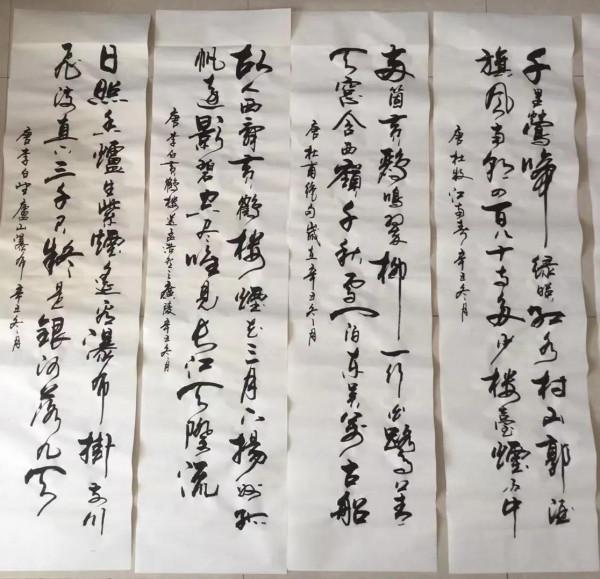 千里鶯啼綠映紅水村山郭酒
旗風南朝四百八十寺多少樓臺煙雨中
唐杜牧江南春 辛丑冬月
両箇黄鸝鳴翠柳一行白鷺上青
天窓含西嶺千秋雪门泊東吴萬里船
唐杜甫絕句 歲在辛丑冬月
故人西辭黃鶴樓煙花三月下揚州孤
帆遠影碧空盡唯見長江天際流
唐李白黃鶴樓送孟浩然之廣陵 辛丑冬月
日照香爐生紫煙遙看瀑布掛前川
飛流直下三千尺疑是銀河落九天
唐李白望廬山瀑布 辛丑冬月